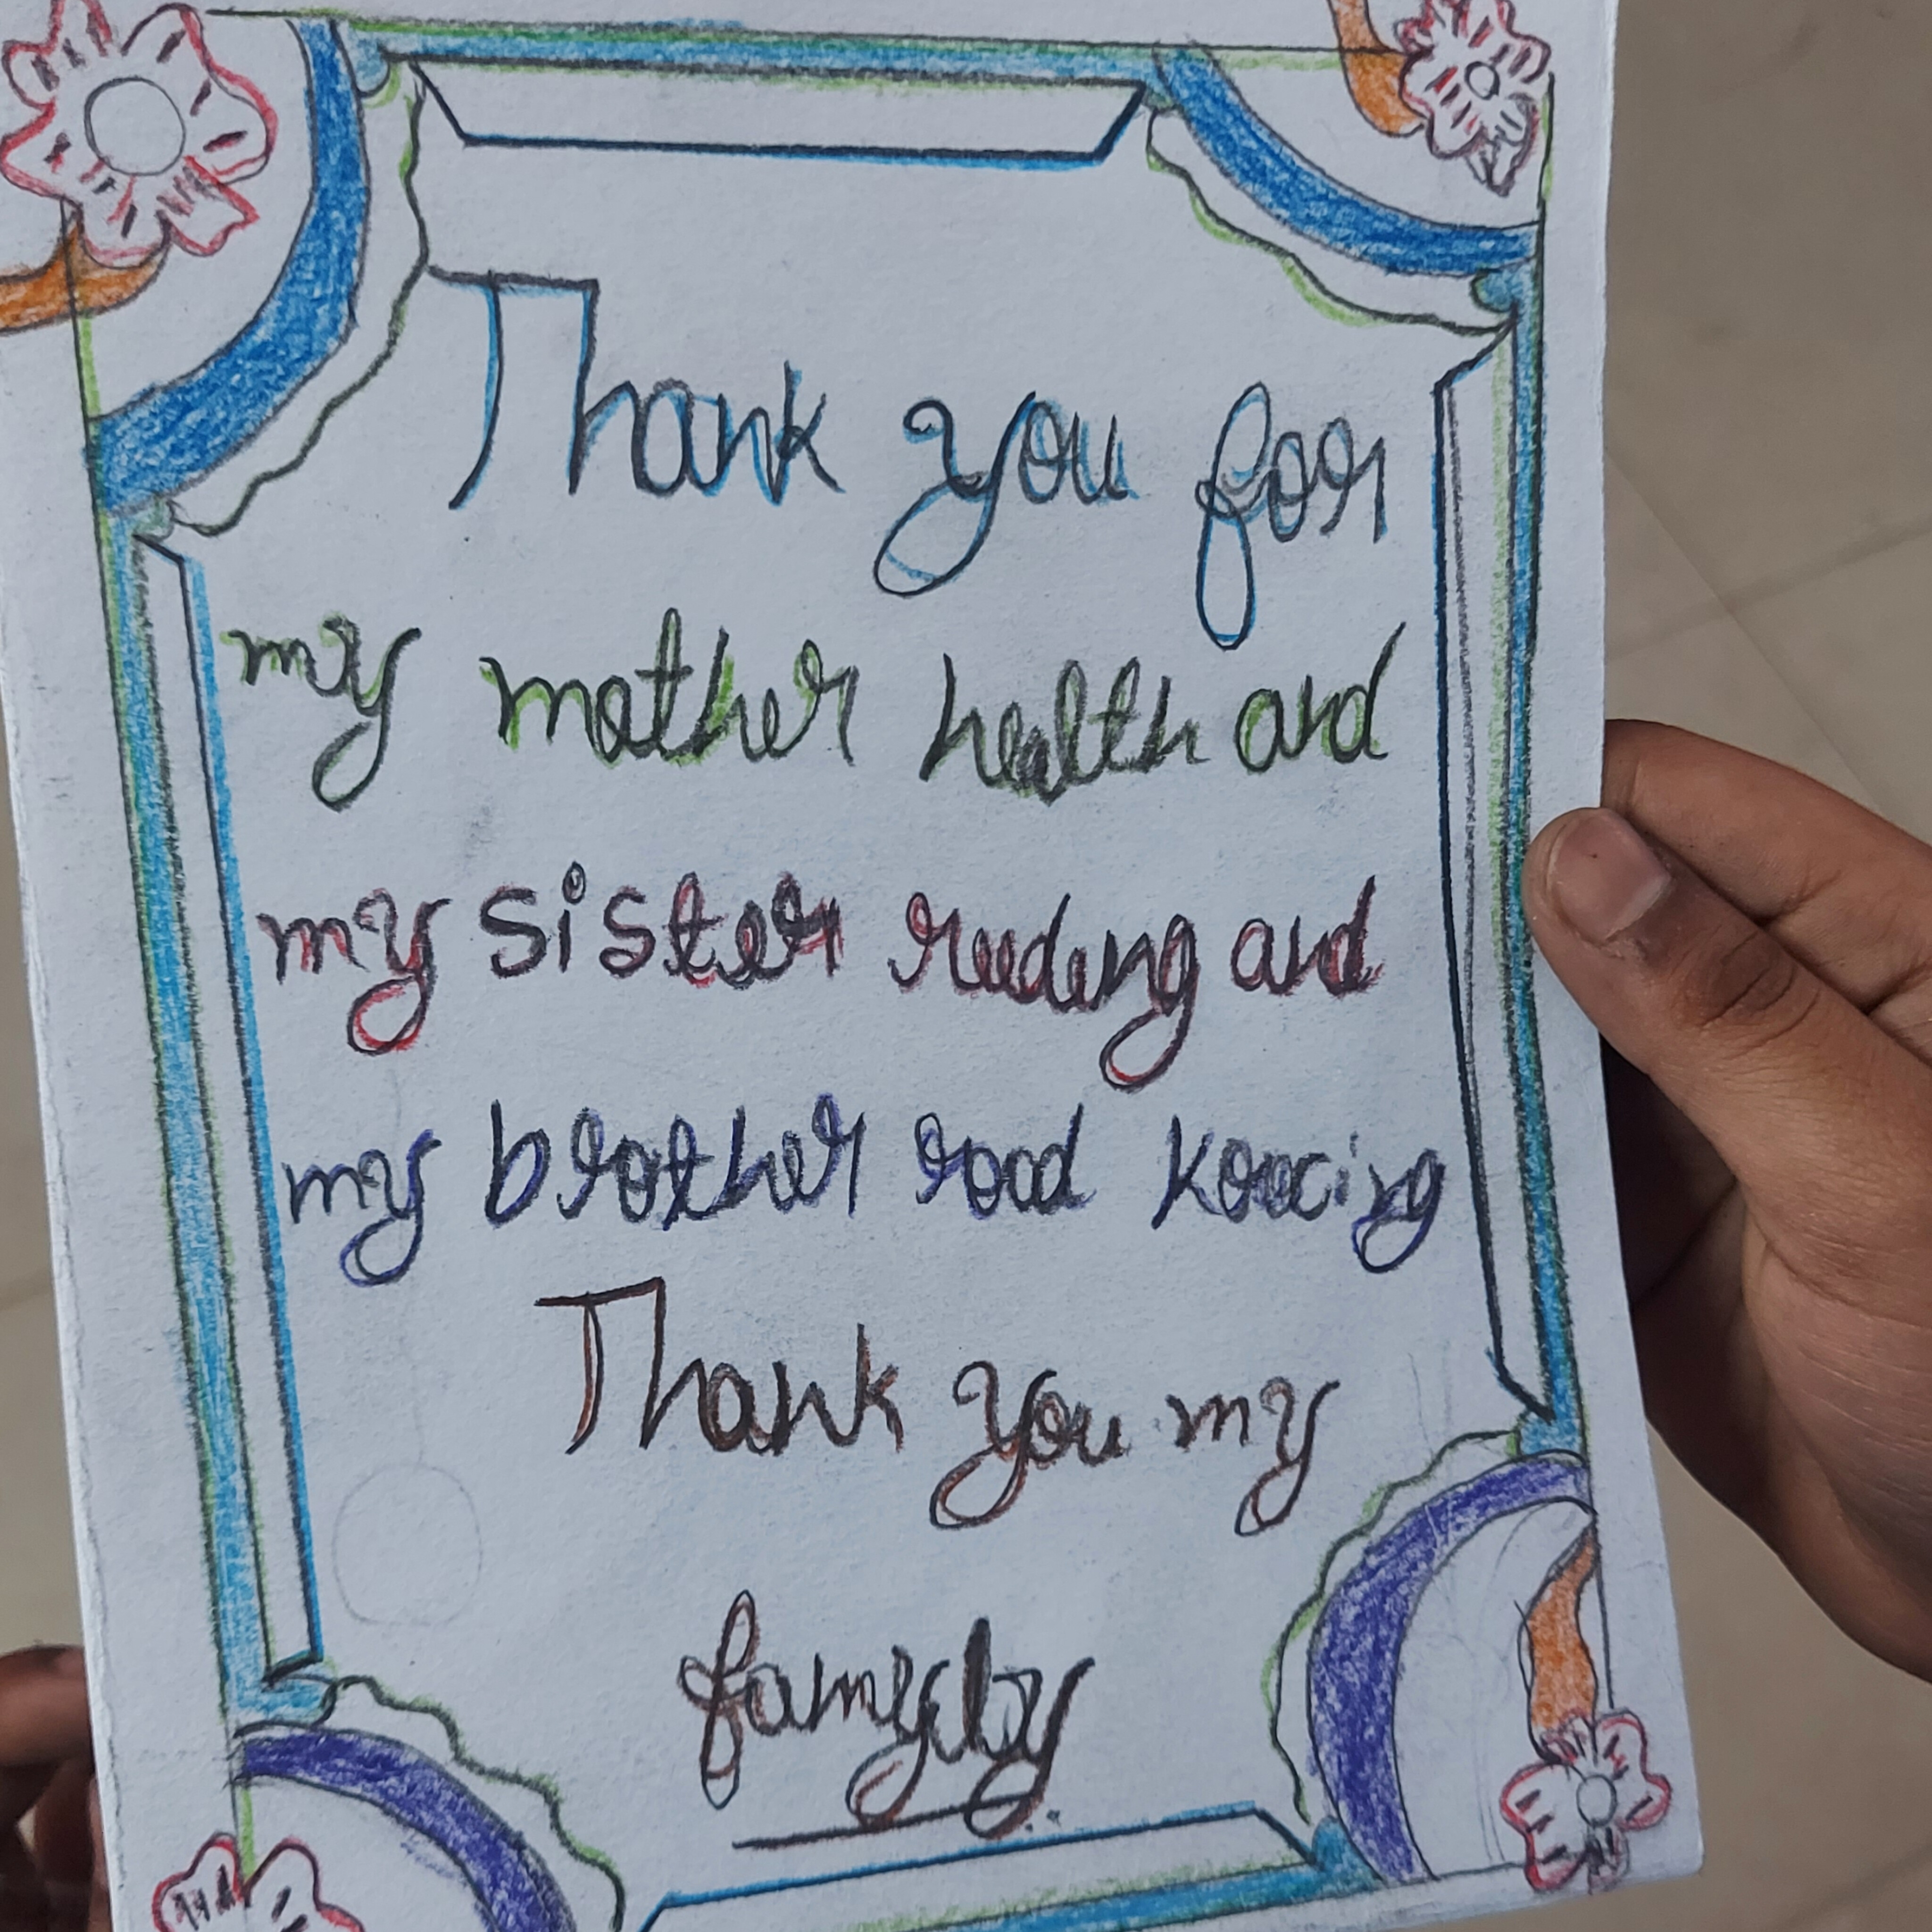 Thank you for
my mother health and
my sister reeding and
my brother rood koocing
Thank you my
famyly